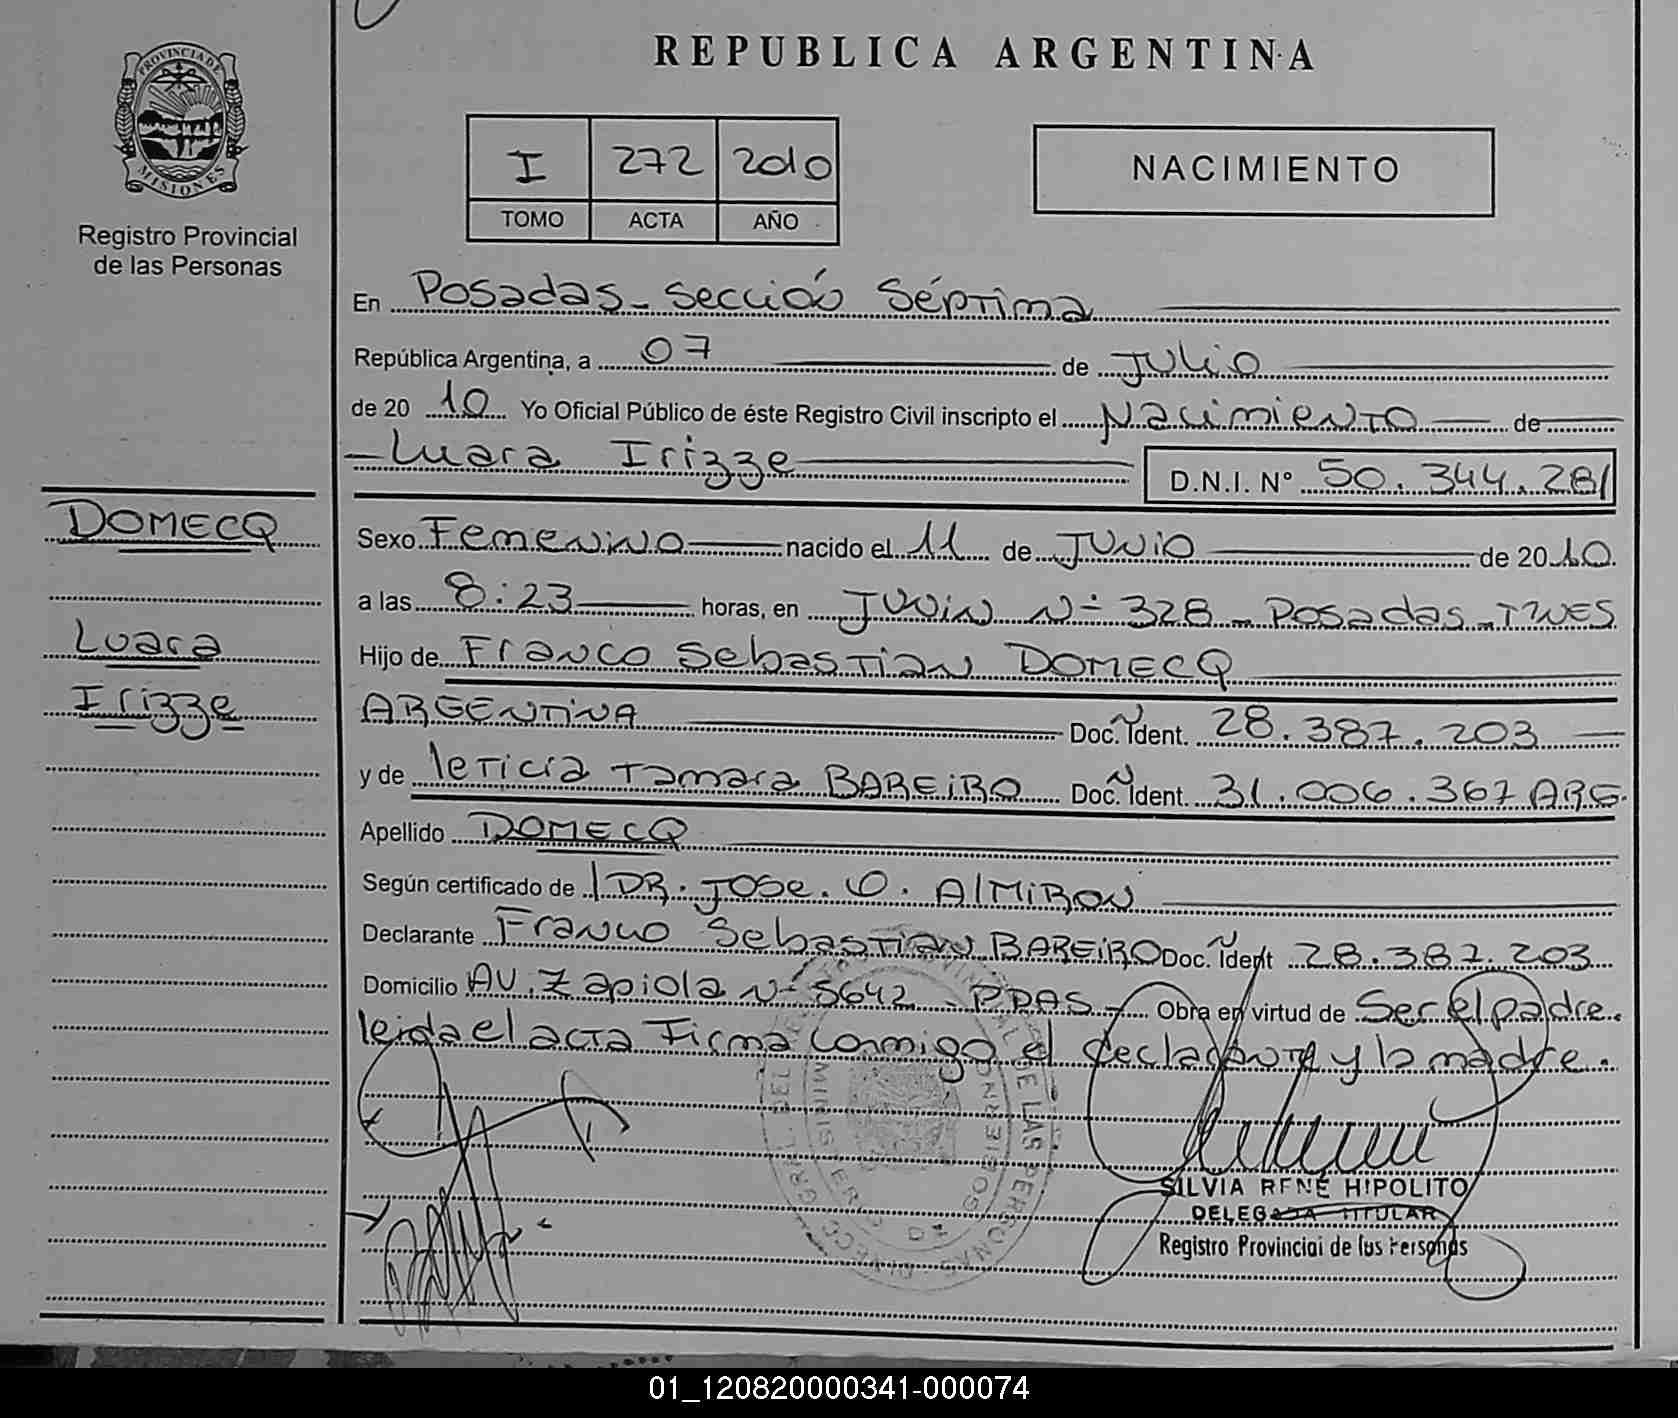 REPUBLICA ARGENTINA
PROVINCIA DE
MISIONES
Registro Provincial
de las Personas
I 272 2010
TOMO ACTA AÑO
NACIMIENTO
En Posadas - Sección Séptima
República Argentina, a 07 de Julio
de 2010 Yo Oficial Público de éste Registro Civil inscripto el Nacimiento de
Luara Irizze D.N.I. N° 50.344.281
DOMECQ
Luara
Irizze
Sexo Femenino nacido el 11 de Junio de 2010.
a las 8:23 horas, en Junin N° 328 - Posadas - Mnes
Hijo de Franco Sebastian DOMECQ
ARGENTINA Doc. Ident. 28.387.203
y de leticia Tamara BAREIRO Doc. Ident. 31.006.367 ARG.
Apellido DOMECQ
Según certificado de DR. Jose. O. AlMiRON
Declarante Franco Sebastian BAREIRO Doc. Ident 28.387.203
Domicilio AV. Zapiola N° 5642 - PDAS - Obra en virtud de Ser el padre.
leida el acta Firma conmigo el declarante y la madre.
SILVIA RENÉ HIPOLITO
DELEGADA TITULAR
Registro Provincial de las Personas
01_120820000341-000074